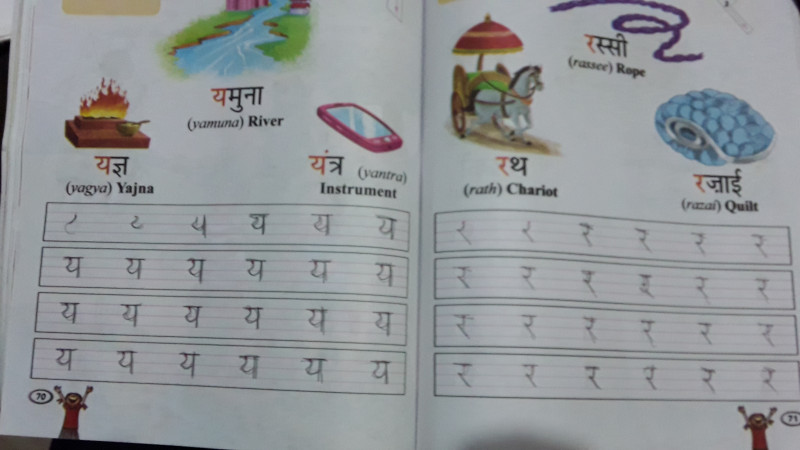 यमुना
(yamuna) River
यज्ञ
(yagya) Yajna
यंत्र (yantra)
Instrument
य य य य
य य य य य य
य य य य य य
य य य य य य
70
रस्सी
(rassee) Rope
रथ
(rath) Chariot
रज़ाई
(razai) Quilt
र र र र र र
र र र र र र
र र र र र र
र र र र र र
71